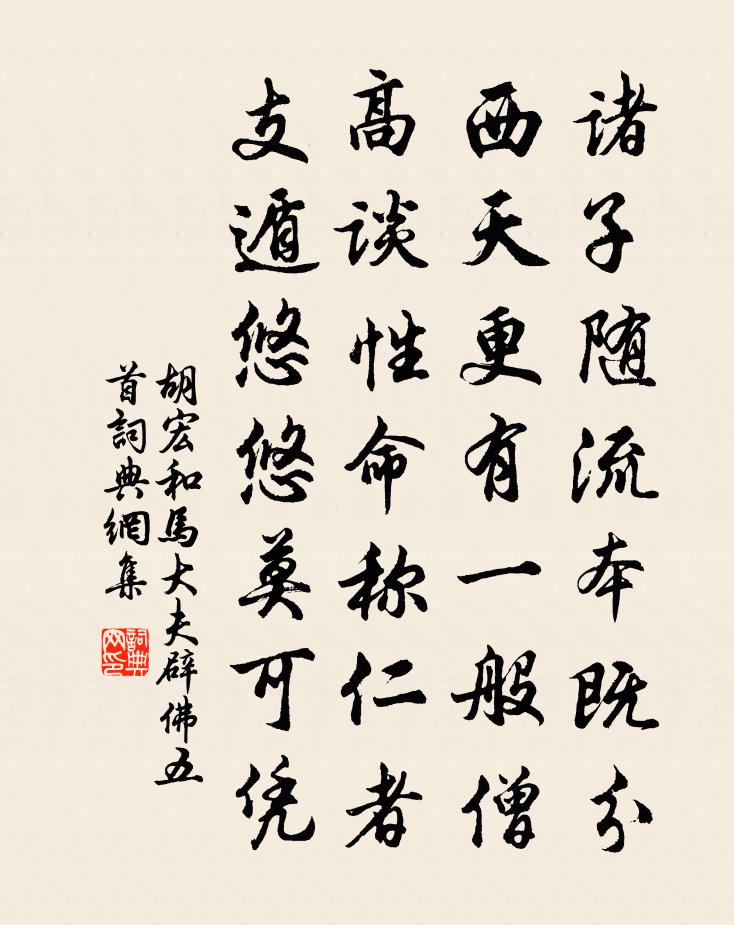 诸子随流本既分
西天更有一般僧
高谈性命称仁者
支遁悠悠莫可凭
胡宏和馬大夫辟佛五
首詞典網集
詞典
网印